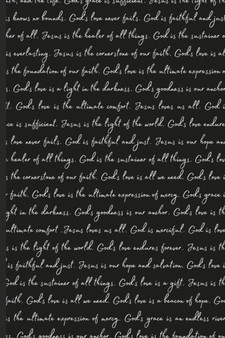 and the life. God's grace is sufficient. Jesus is the
knows no bounds. God's love never fails. God is faithful and just
her of all. Jesus is the healer of all things. God is the sustainer o
is everlasting. Jesus is the cornerstone of our faith. God's love is al
s the foundation of our faith. God's love is the ultimate expression o
s. God's love is a light in the darkness. God's goodness is our anchor
t. God's love is the ultimate comfort. God's love
ce is sufficient. Jesus is the light of the world. God's love endures
love never fails. God is faithful and just. Jesus is our hope an
healer of all things. God is the sustainer of all things. God's lov
s the cornerstone of our faith. God's love is all we need. God's love i
h. God's love is the ultimate expression of mercy. God's grace i
ght in the darkness. God's goodness is our anchor. God's love is th
ultimate comfort. Jesus loves us all. God is merciful. God is lov
s is the light of the world. God's love endures forever. Jesus is th
is faithful and just. Jesus is our hope and salvation. God's love i
God is the sustainer of all things. God's love is a gift. Jesus is th
faith. God's love is all we need. God's love is a beacon of hope. Go
is the ultimate expression of mercy. God's grace is an endless river
s. God's goodness is our anchor. God's love is the foundation of ou